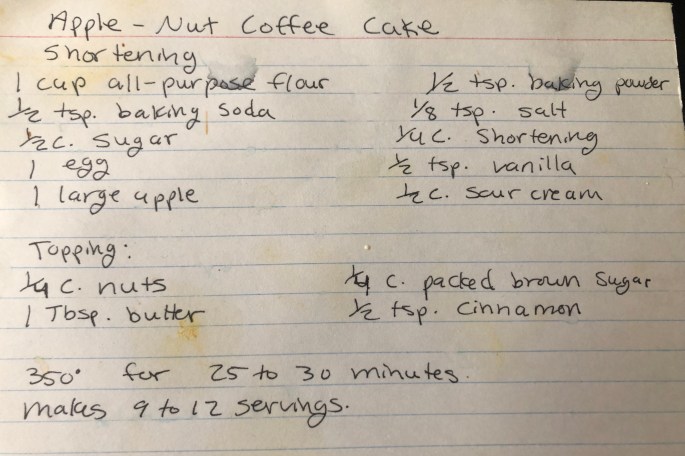 Apple - Nut Coffee Cake
Shortening
1 cup all-purpose flour 1/2 tsp. baking powder
1/2 tsp. baking soda 1/8 tsp. salt
1/2 c. sugar 1/4 c. Shortening
1 egg 1/2 tsp. vanilla
1 large apple 1/2 c. sour cream
Topping:
1/4 c. nuts 1/4 c. packed brown sugar
1 Tbsp. butter 1/2 tsp. cinnamon
350° for 25 to 30 minutes.
makes 9 to 12 servings.